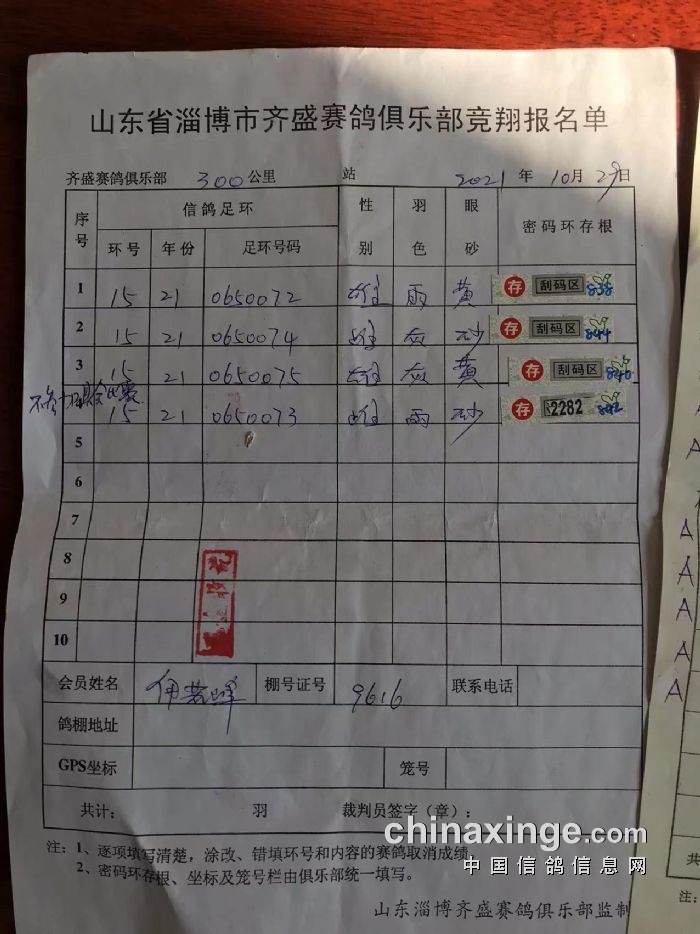 山东省淄博市齐盛赛鸽俱乐部竞翔报名单
齐盛赛鸽俱乐部 300公里 站 2021年10月29日
序号 信鸽足环 性别 羽色 眼砂 密码环存根
环号 年份 足环号码
1 15 21 0650072 雄 雨 黄 存 刮码区 838
2 15 21 0650074 雄 灰 砂 存 刮码区 844
3 15 21 0650075 雄 灰 黄 存 刮码区 840
不参加 比赛
4 15 21 0650073 雄 雨 砂 存 2282 842
5
6
7
8
9
10
会员姓名 伊 峰 棚号证号 9616 联系电话
鸽棚地址
GPS坐标 笼号
共计: 羽 裁判员签字（章）:
注: 1、逐项填写清楚，涂改、错填环号和内容的赛鸽取消成绩。
2、密码环存根、坐标及笼号栏由俱乐部统一填写。
山东淄博齐盛赛鸽俱乐部监制
A
A
A
A
A
A
共
注:
chinaxinge.com
中国信鸽信息网